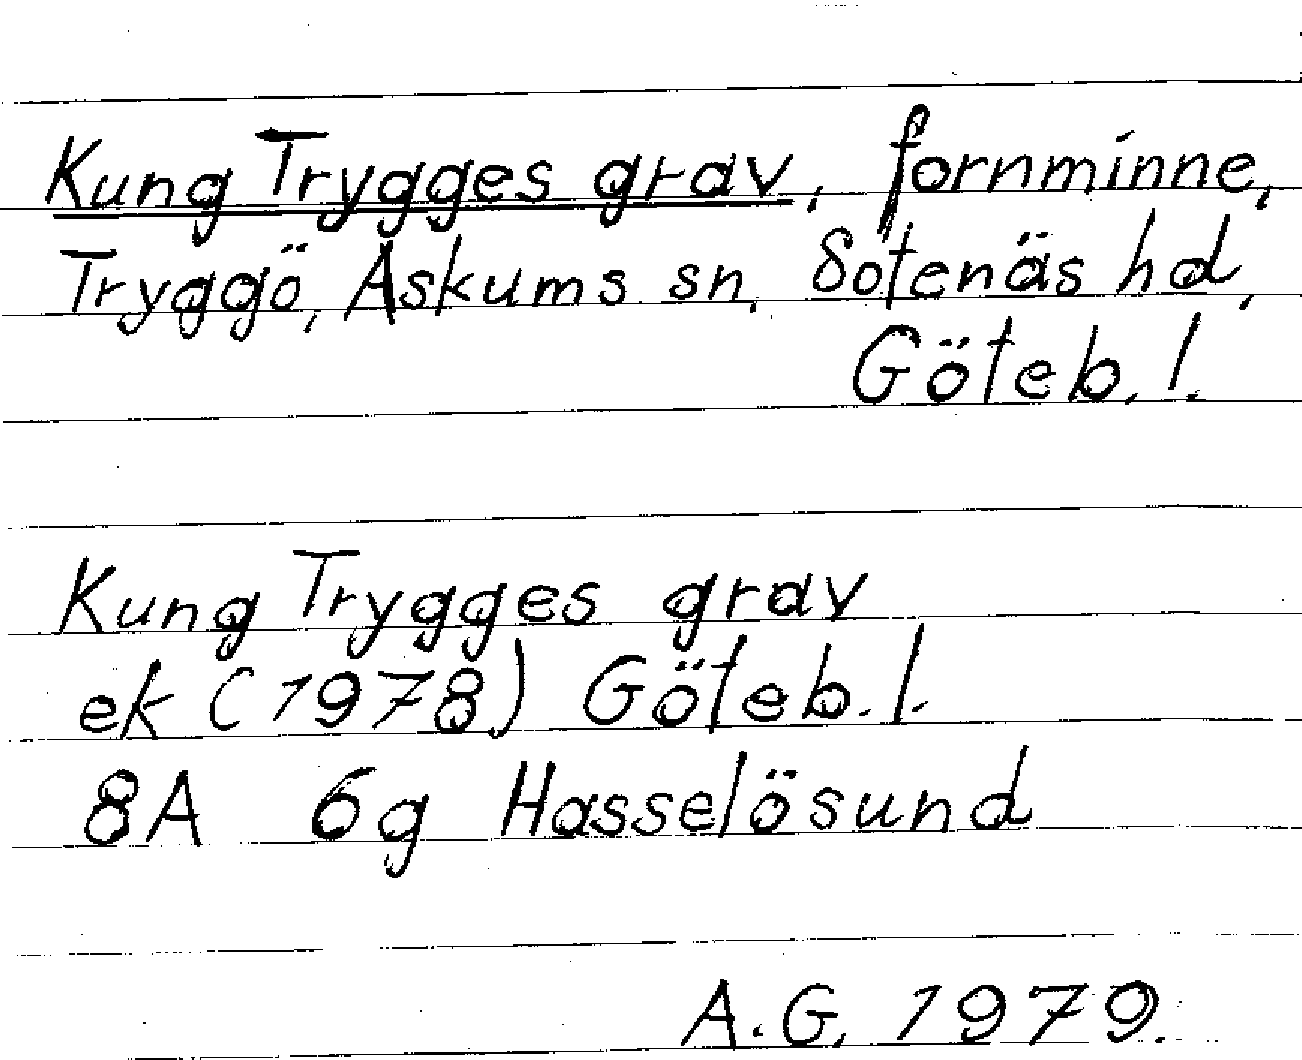 Kung Trygges grav, fornminne,
Tryggö, Askums sn, Sotenäs hd,
Göteb. l.
Kung Trygges grav
ek (1978) Göteb. l.
8A 6g Hasselösund
A.G. 1979.